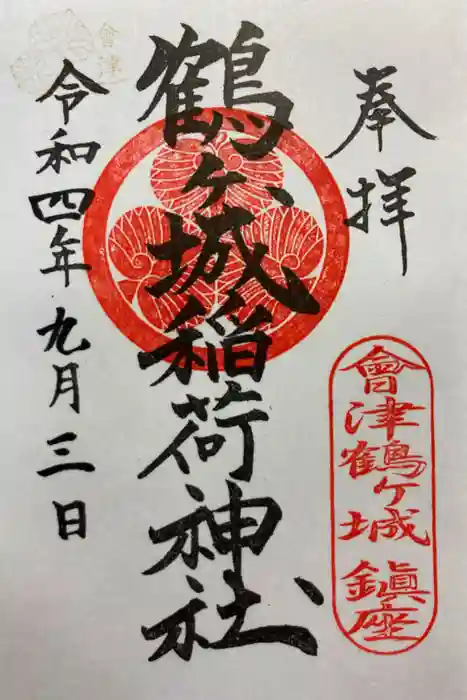 奉拝
會津鶴ヶ城鎮座
鶴ヶ城稲荷神社
令和四年九月三日
會津